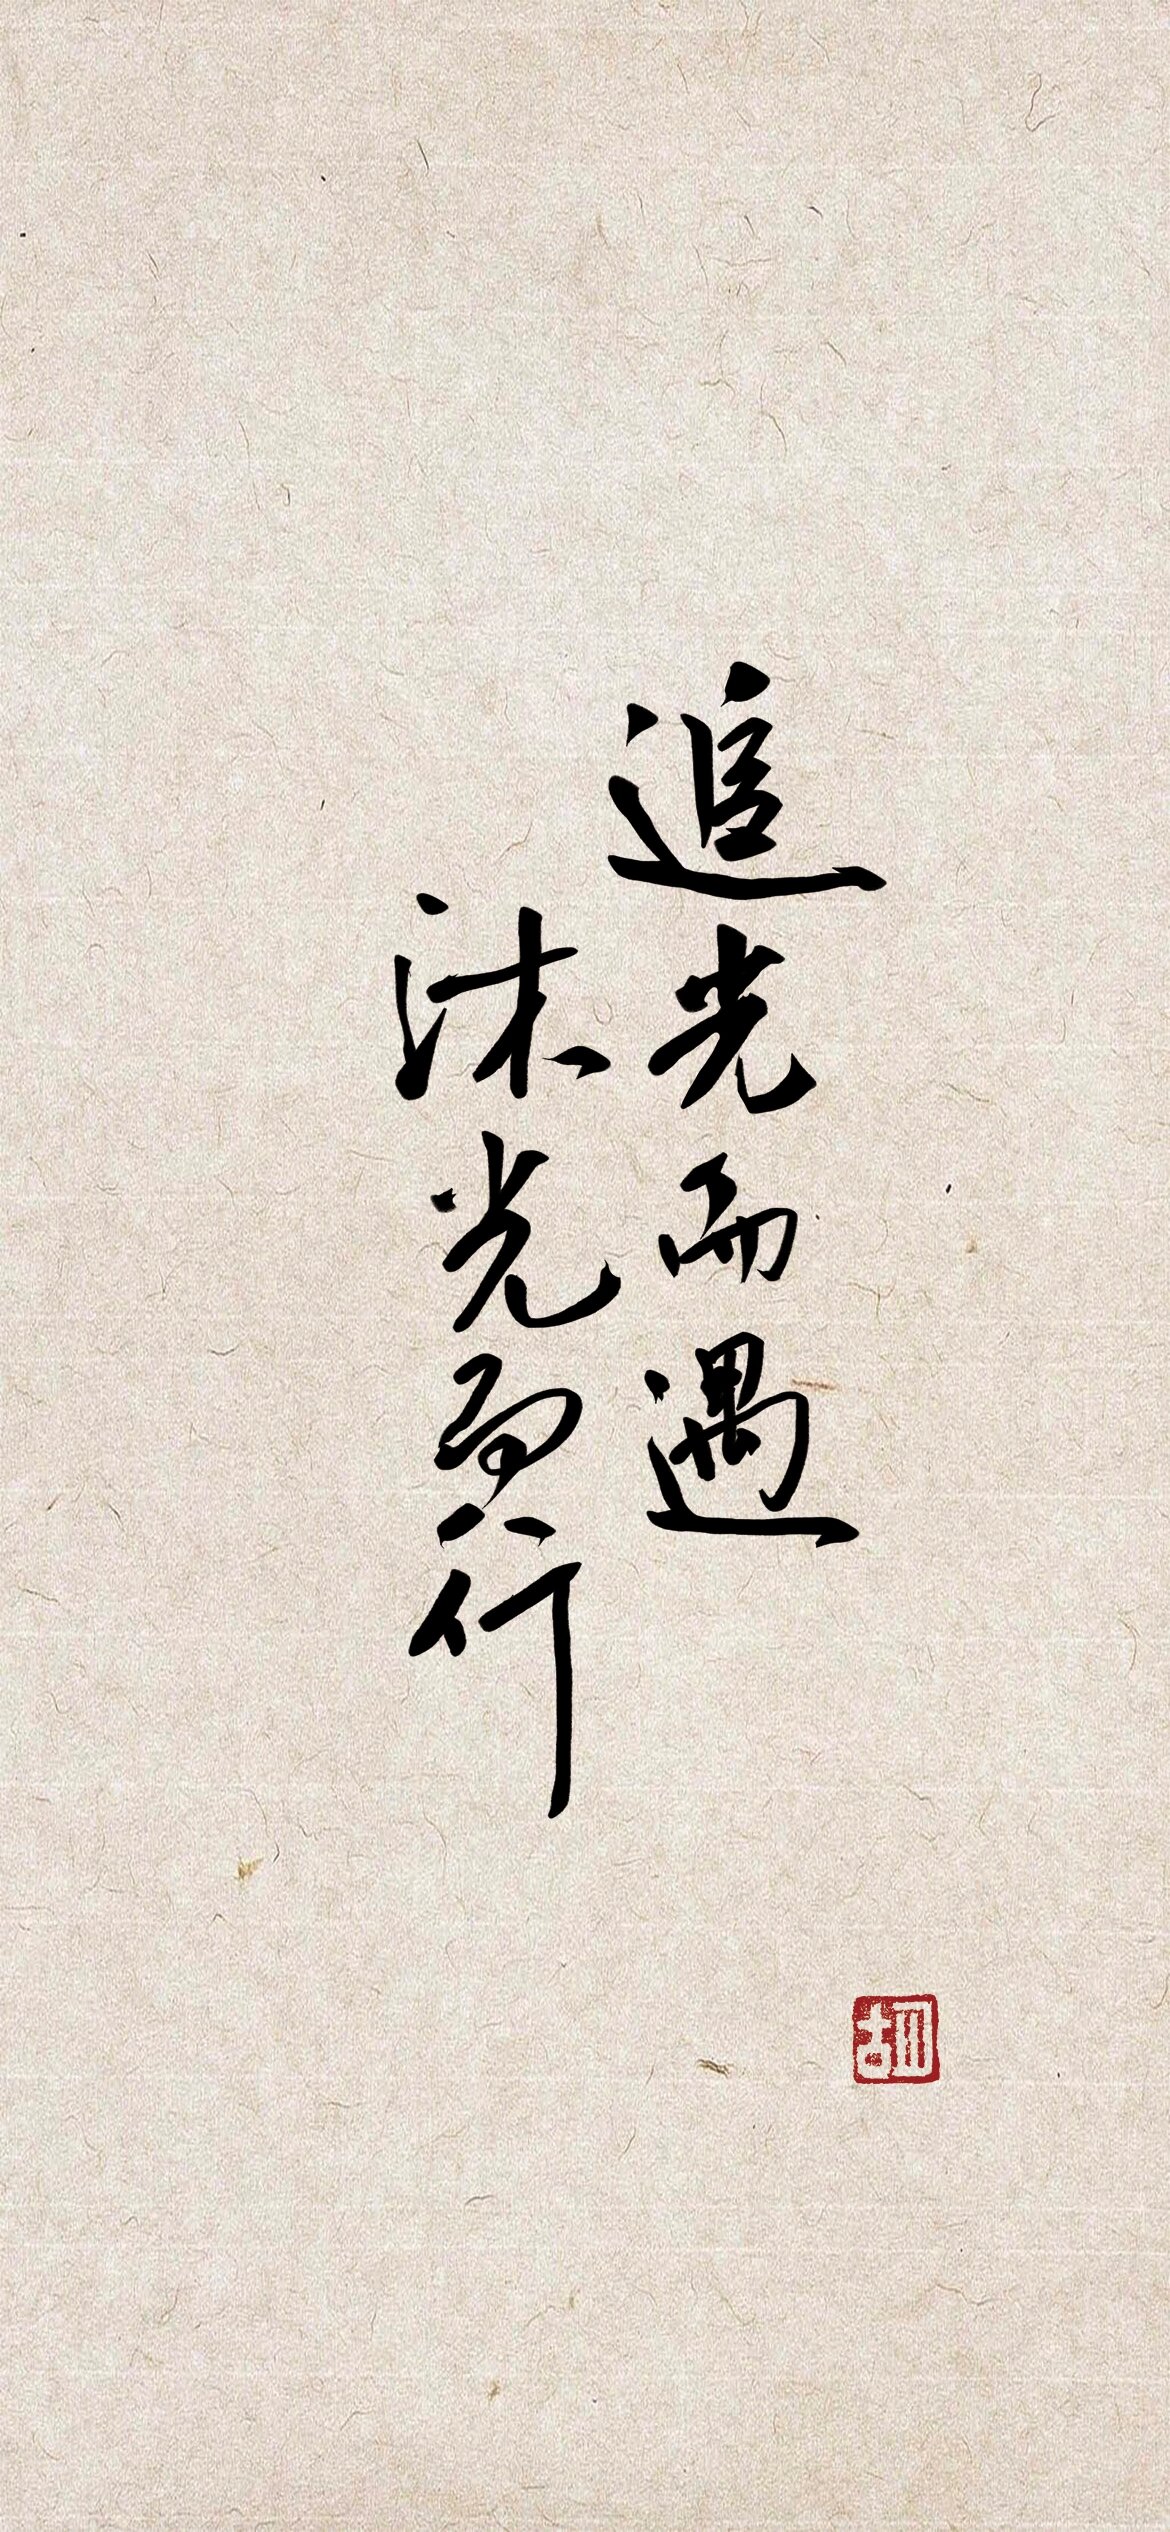 追光而遇
沐光而行
胡